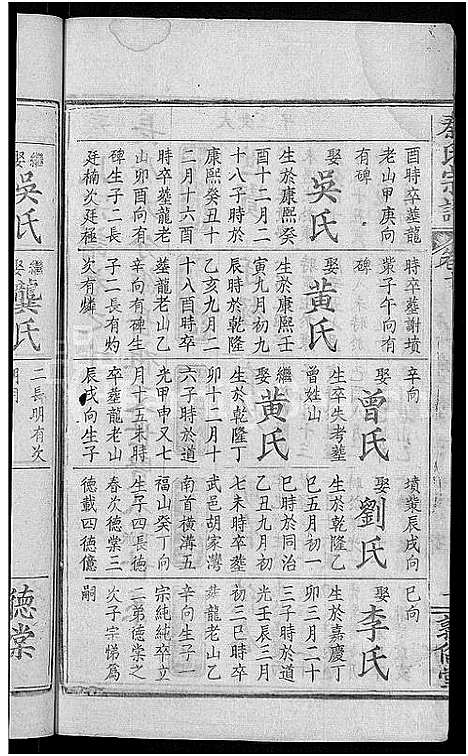 酉時卒塟龍
老山甲庚向
有碑
娶吳氏
生於康熙癸
酉十二月二
十八子時於
康熙癸丑十
二月十六酉
時卒塟龍老
山卯酉向有
碑生子二長
廷楠次廷極
繼娶吳氏
時卒塟謝墳
紫子午向有
碑
娶黃氏
生於康熙壬
寅九月初九
辰時於乾隆
乙亥九月二
十八酉時卒
塟龍老山乙
辛向有碑生
子二長有灼
次有燐
繼娶龔氏
辛向
娶曾氏
生卒失考塟
曾姓山
繼娶黃氏
生於乾隆丁
卯十二月十
六子時於道
光甲申又七
月十五未時
卒塟龍老山
辰戌向生子
二長明有次
明
墳蓌辰戌向
娶劉氏
生於乾隆乙
巳五月初一
巳時於同治
乙丑九月初
七未時卒塟
武邑胡家灣
南首橫溝五
福山癸丁向
生子四長德
春次德棠三
德載四德億
德棠
巳向
娶李氏
生於嘉慶丁
卯三月二十
三子時於道
光壬辰三月
初三巳時卒
塟龍老山乙
辛向生子一
宗純純卒立
二弟德棠之
次子宗悌爲
嗣
秦氏宗譜
卷